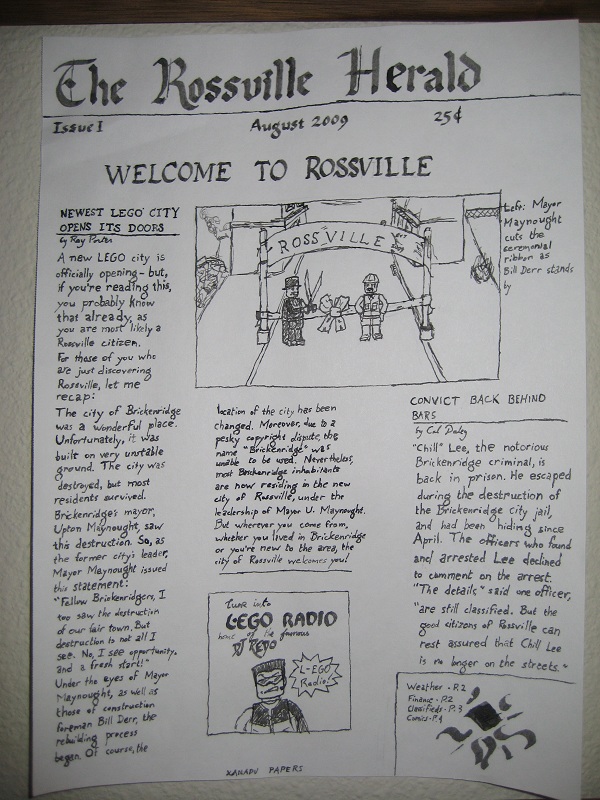 The Rossville Herald
Issue 1 August 2009 25¢
WELCOME TO ROSSVILLE
NEWEST LEGO CITY
OPENS ITS DOORS
by Ray Porter
A new LEGO city is
officially opening - but,
if you're reading this,
you probably know
that already, as
you are most likely a
Rossville citizen.
For those of you who
are just discovering
Rossville, let me
recap:
The city of Brickenridge
was a wonderful place.
Unfortunately, it was
built on very unstable
ground. The city was
destroyed, but most
residents survived.
Brickenridge's mayor,
Upton Maynought, saw
this destruction. So, as
the former city's leader,
Mayor Maynought issued
this statement:
"Fellow Brickenridgers, I
too saw the destruction
of our fair town. But
destruction is not all I
see. No, I see opportunity,
and a fresh start!"
Under the eyes of Mayor
Maynought, as well as
those of construction
foreman Bill Derr, the
rebuilding process
began. Of course, the
ROSSVILLE
Left: Mayor
Maynought
cuts the
ceremonial
ribbon as
Bill Derr stands
by
location of the city has been
changed. Moreover, due to a
pesky copyright dispute, the
name "Brickenridge" was
unable to be used. Nevertheless,
most Brickenridge inhabitants
are now residing in the new
city of Rossville, under the
leadership of Mayor U. Maynought.
But wherever you come from,
whether you lived in Brickenridge
or you're new to the area, the
city of Rossville welcomes you!
Tune into
LEGO RADIO
home of the famous
DJ
L-EGO
Radio!
CONVICT BACK BEHIND
BARS
by Cal Daley
"Chill" Lee, the notorious
Brickenridge criminal, is
back in prison. He escaped
during the destruction of
the Brickenridge city jail,
and had been hiding since
April. The officers who found
and arrested Lee declined
to comment on the arrest.
"The details" said one officer,
"are still classified. But the
good citizens of Rossville can
rest assured that Chill Lee
is no longer on the streets."
Weather - P.2
Finance - P.2
Classifieds - P.3
Comics - P.4
XANADU PAPERS